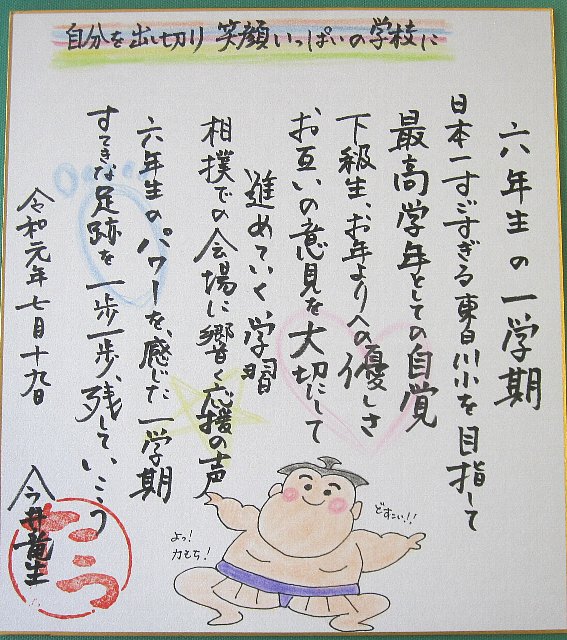 自分を出し切り 笑顔いっぱいの学校に
六年生の一学期
日本一すごすぎる東白川小を目指して
最高学年としての自覚
下級生、お年よりへの優しさ
お互いの意見を大切にして
進めていく学習
相撲での会場に響く応援の声
六年生のパワーを、感じた一学期
すてきな足跡を一歩一歩、残していこう
令和元年七月十九日
今井竜生
たつ
どすこい!!
よっ!
力もち!